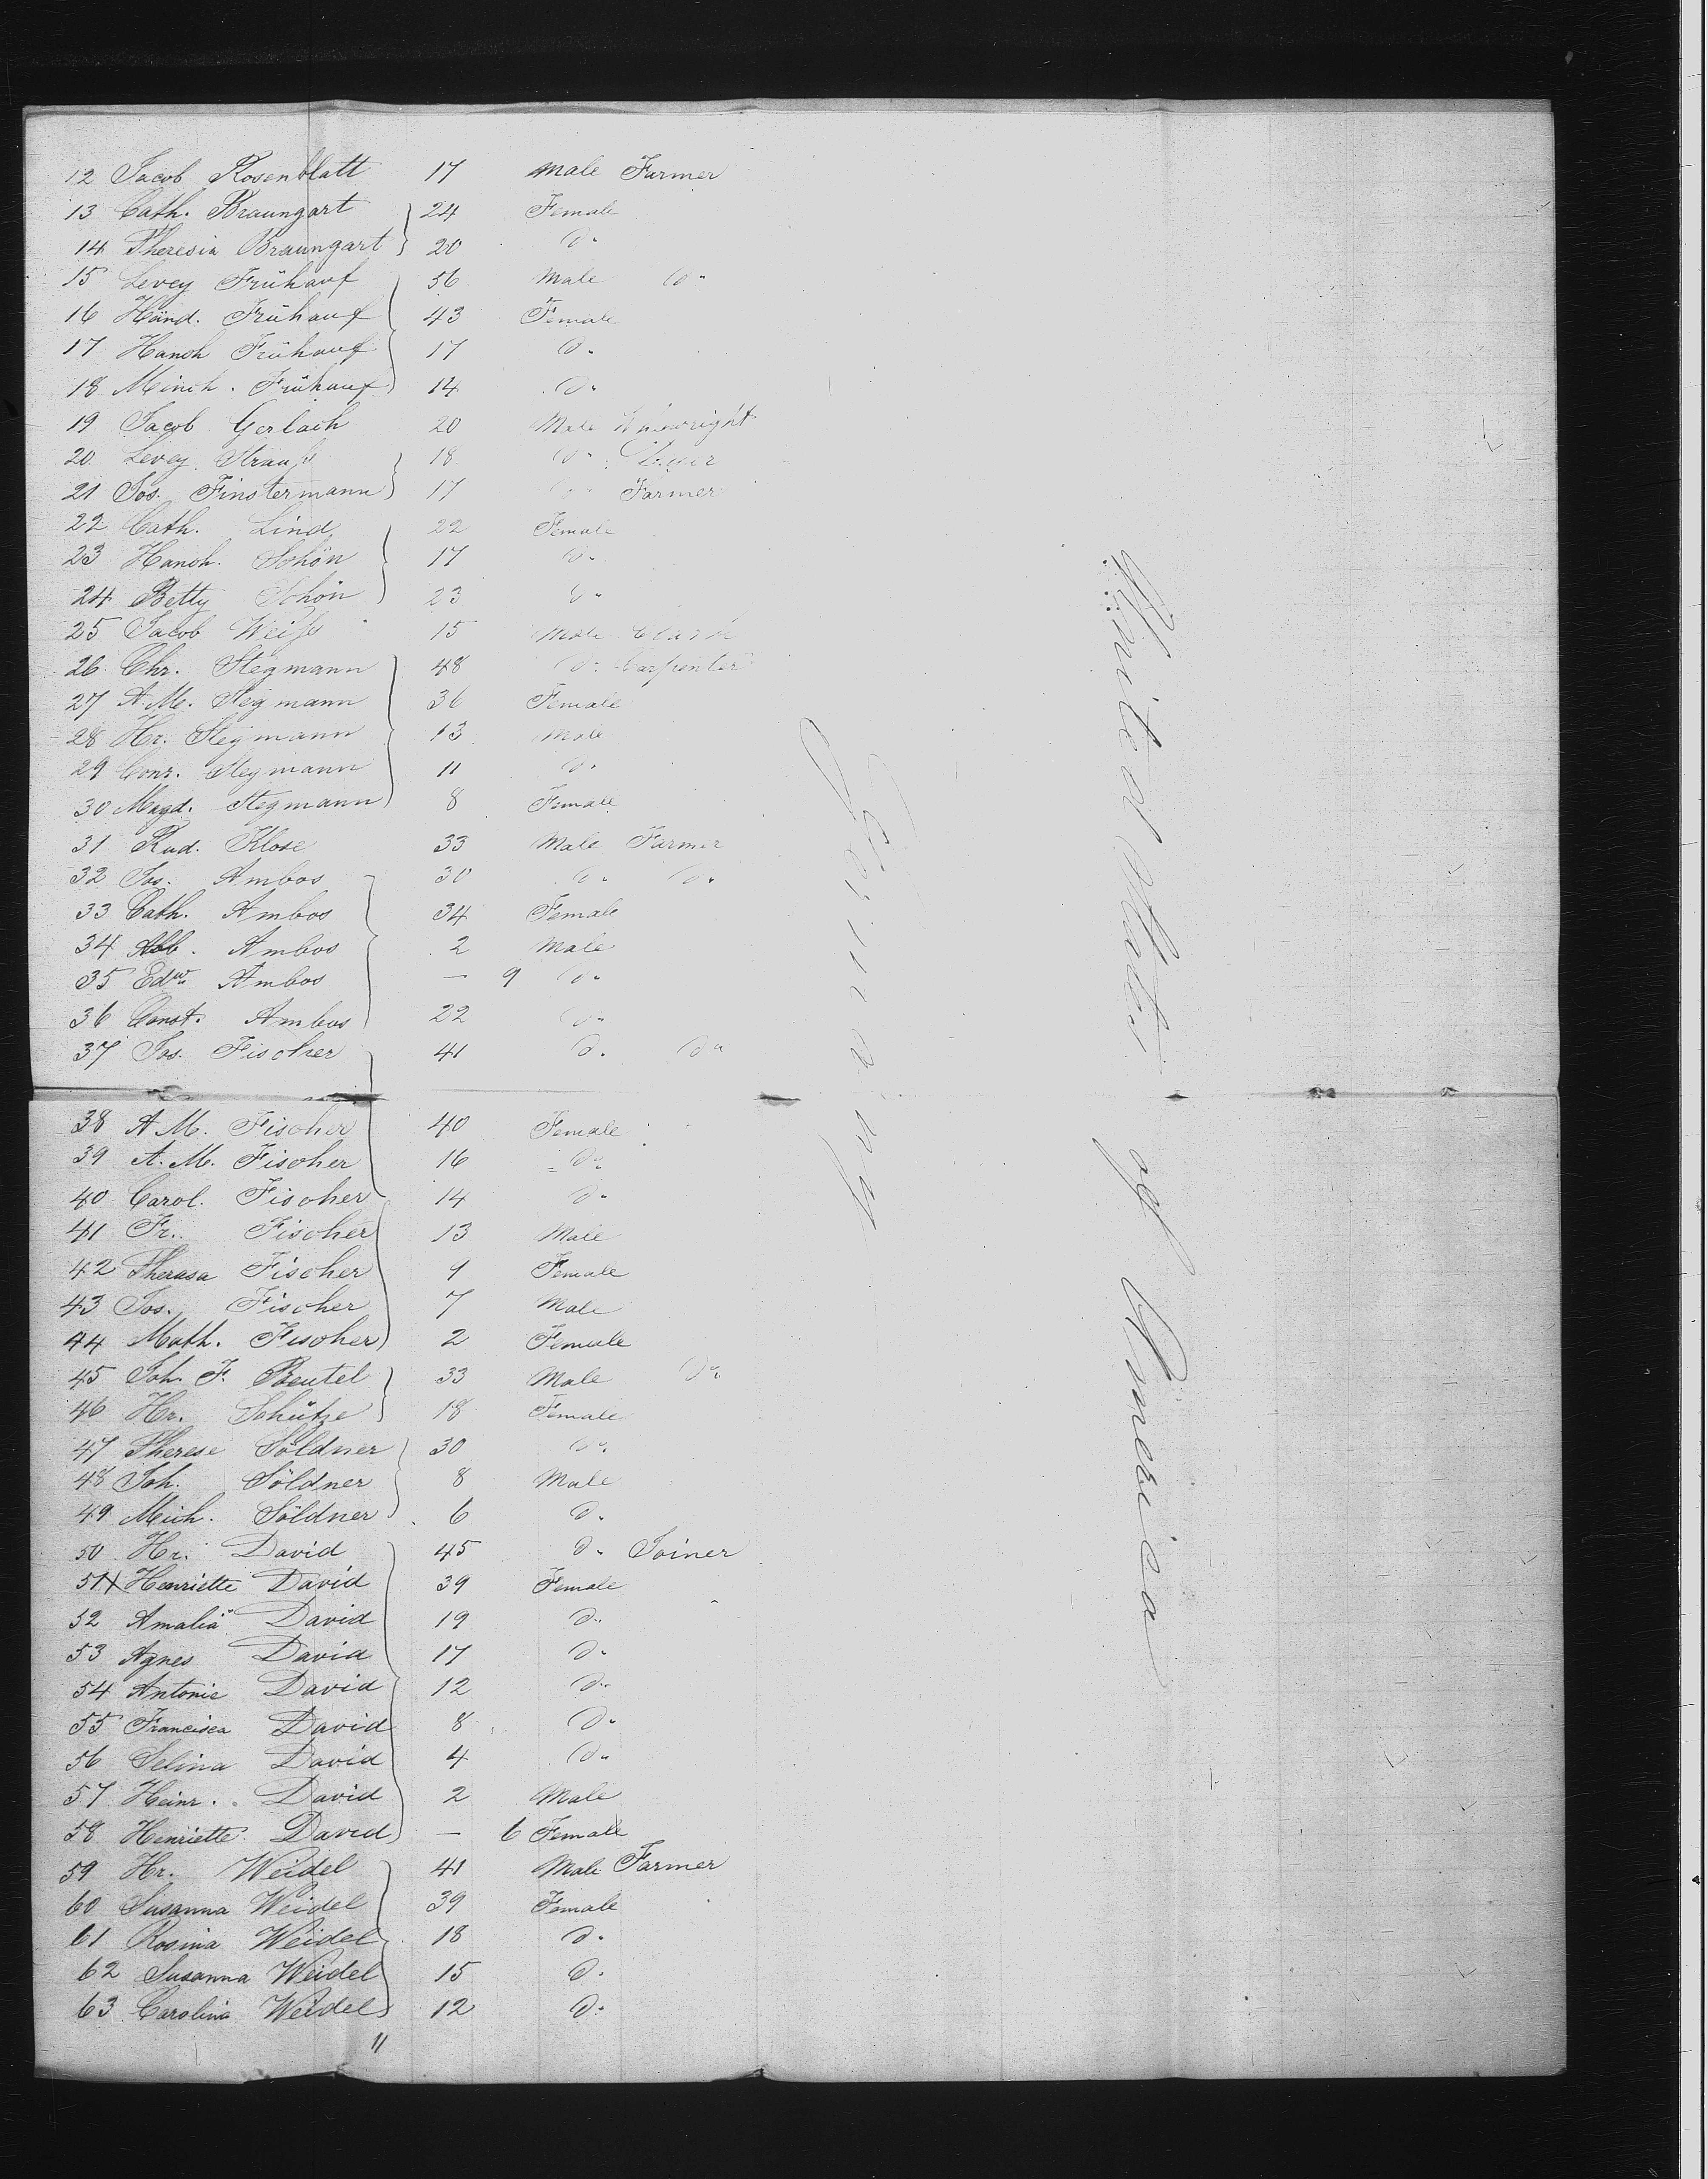 12 Jacob Rosenblatt 17 Male Farmer
13 Cath. Braungart 24 Female
14 Theresia Braungart 20 do
15 Levey Frühauf 56 Male do
16 Händ. Frühauf 43 Female
17 Hanch Frühauf 17 do
18 Minch. Frühauf 14 do
19 Jacob Gerlach 20 Male
20 Levey Strauß 18 do
21 Jos. Finstermann 17 do Farmer
22 Cath. Lind 22 Female
23 Hanch. Schön 17 do
24 Betty Schön 23 do
25 Jacob Weiß 15 Male
26 Chr. Stegmann 48 do Carpenter
27 A. M. Stegmann 36 Female
28 Hr. Stegmann 13 Male
29 Conr. Stegmann 11 do
30 Magd. Stegmann 8 Female
31 Rud. Klose 33 Male Farmer
32 Jos. Ambos 30 do do
33 Cath. Ambos 34 Female
34 Ambos 2 Male
35 Edw. Ambos — 9 do
36 Const. Ambos 22 do
37 Jos. Fischer 41 do do
38 A M. Fischer 40 Female
39 A. M. Fischer 16 do
40 Carol. Fischer 14 do
41 Fr. Fischer 13 Male
42 Therasa Fischer 9 Female
43 Jos. Fischer 7 Male
44 Math. Fischer 2 Female
45 Joh. F. Beutel 33 Male do
46 Hr. Schütze 18 Female
47 Therese Söldner 30 do
48 Joh. Söldner 8 Male
49 Mich. Söldner 6 do
50 Hr. David 45 do Joiner
51 X Henriette David 39 Female
52 Amalia David 19 do
53 Agnes David 17 do
54 Antonie David 12 do
55 Francisca David 8 do
56 Selina David 4 do
57 Heinr. David 2 Male
58 Henriette David — 6 Female
59 Hr. Weidel 41 Male Farmer
60 Susanna Weidel 39 Female
61 Rosina Weidel 18 do
62 Susanna Weidel 15 do
63 Carolina Weidel 12 do
11
Germany
United States of America